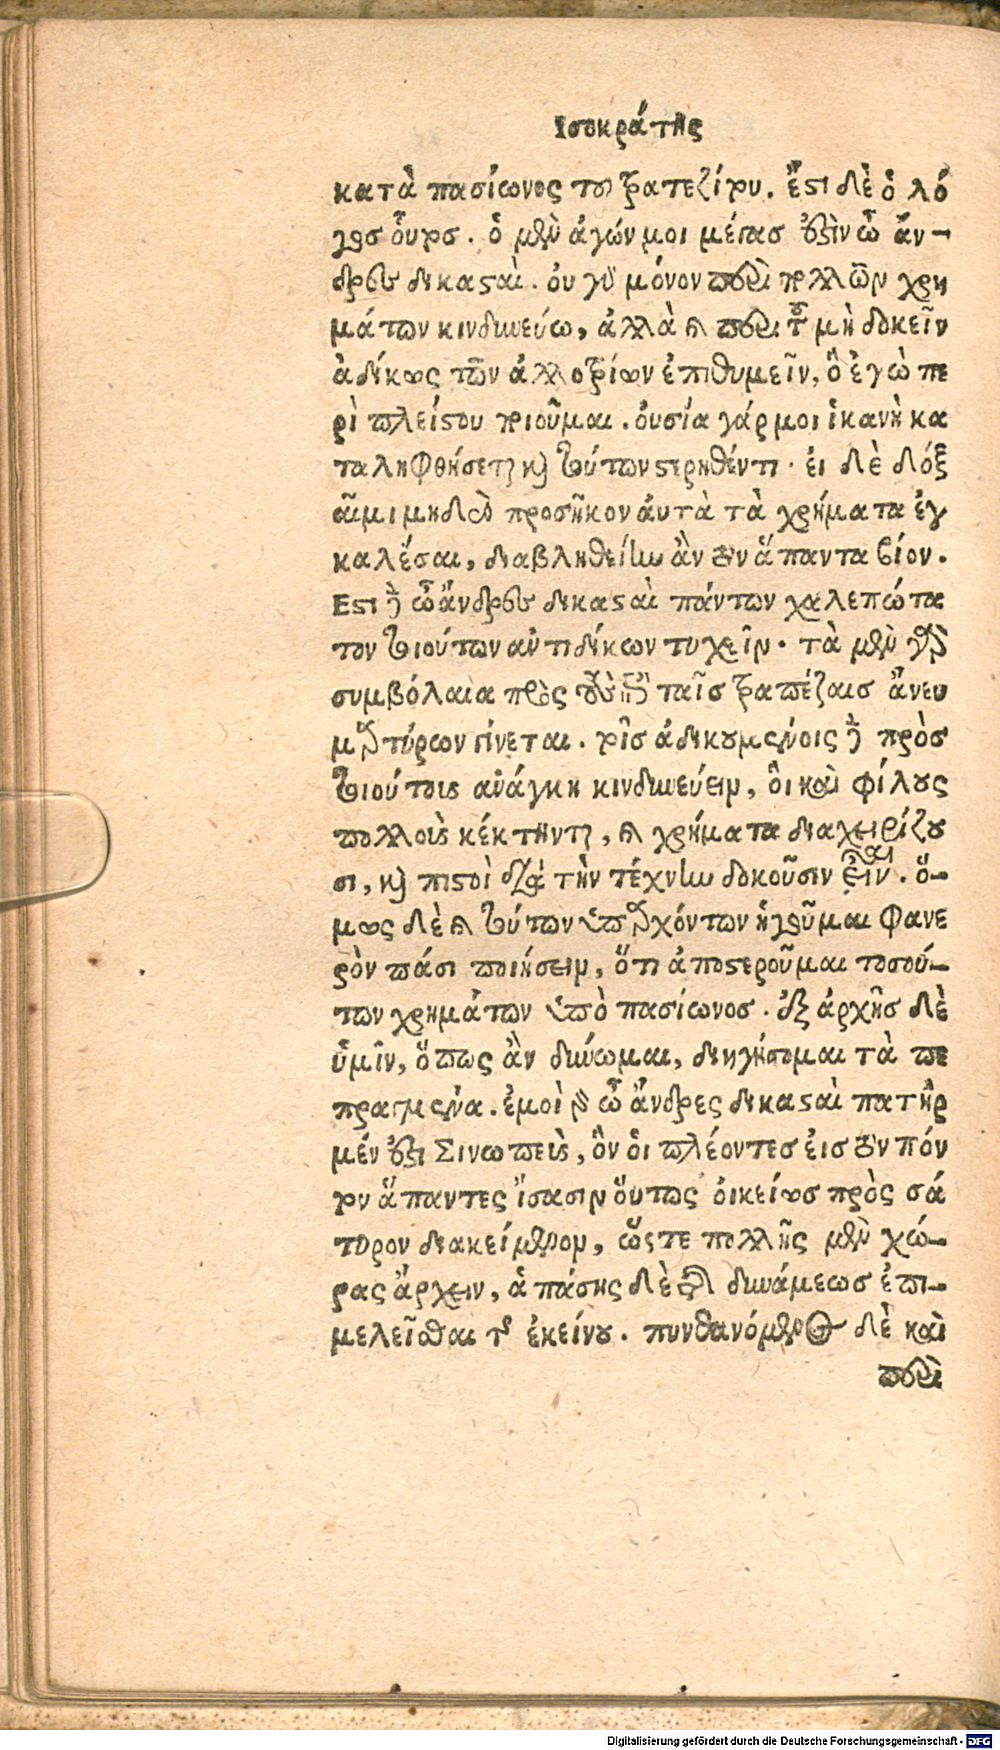 Ισοκράτης
κατὰ πασίωνος τοῦ τραπεζίτου. ἔστι δὲ ὁ λό
γος οὗτος. ὁ μὲν ἀγών μοι μέγας ἐστὶν ὦ ἄν-
δρες δικασταὶ. οὐ γὰρ μόνον περὶ πολλῶν χρη
μάτων κινδυνεύω, ἀλλὰ καὶ περὶ τοῦ μὴ δοκεῖν
ἀδίκως τῶν ἀλλοτρίων ἐπιθυμεῖν, ὃ ἐγὼ πε
ρὶ πλείστου ποιοῦμαι. οὐσία γάρ μοι ἱκανὴ κα
ταληφθήσεται καὶ τούτων στερηθέντι. εἰ δὲ δόξ
αιμι μηδὲν προσῆκον αὐτὰ τὰ χρήματα ἐγ
καλέσαι, διαβληθείην ἂν τὸν ἅπαντα βίον.
Εστι δὲ ὦ ἄνδρες δικασταὶ πάντων χαλεπώτα
τον τοιούτων ἀντιδίκων τυχεῖν. τὰ μὲν γὰρ
συμβόλαια πρὸς τοὺς ἐπὶ ταῖς τραπέζαις ἄνευ
μαρτύρων γίνεται. τοῖς ἀδικουμένοις δὲ πρὸς
τοιούτους ἀνάγκη κινδυνεύειν, οἳ καὶ φίλους
πολλοὺς κέκτηνται, καὶ χρήματα διαχειρίζου
σι, καὶ πιστοὶ διὰ τὴν τέχνην δοκοῦσιν εἶναι. ὅ-
μως δὲ καὶ τούτων ὑπαρχόντων ἡγοῦμαι φανε
ρὸν πάσι ποιήσειν, ὅτι ἀποστεροῦμαι τοσού-
των χρημάτων ὑπὸ πασίωνος. ἐξ ἀρχῆς δὲ
ὑμῖν, ὅπως ἂν δύνωμαι, διηγήσομαι τὰ πε
πραγμένα. ἐμοὶ γὰρ ὦ ἄνδρες δικασταὶ πατὴρ
μέν ἐστι Σινωπεὺς, ὃν οἱ πλέοντες εἰς τὸν πόν
τον ἅπαντες ἴσασιν οὕτως οἰκείως πρὸς σά
τυρον διακείμενον, ὥστε πολλῆς μὲν χώ-
ρας ἄρχειν, ἁπάσης δὲ τῆς δυνάμεως ἐπι-
μελεῖσθαι τῆς ἐκείνου. πυνθανόμενος δὲ καὶ
περὶ
Digitalisierung gefördert durch die Deutsche Forschungsgemeinschaft - DFG